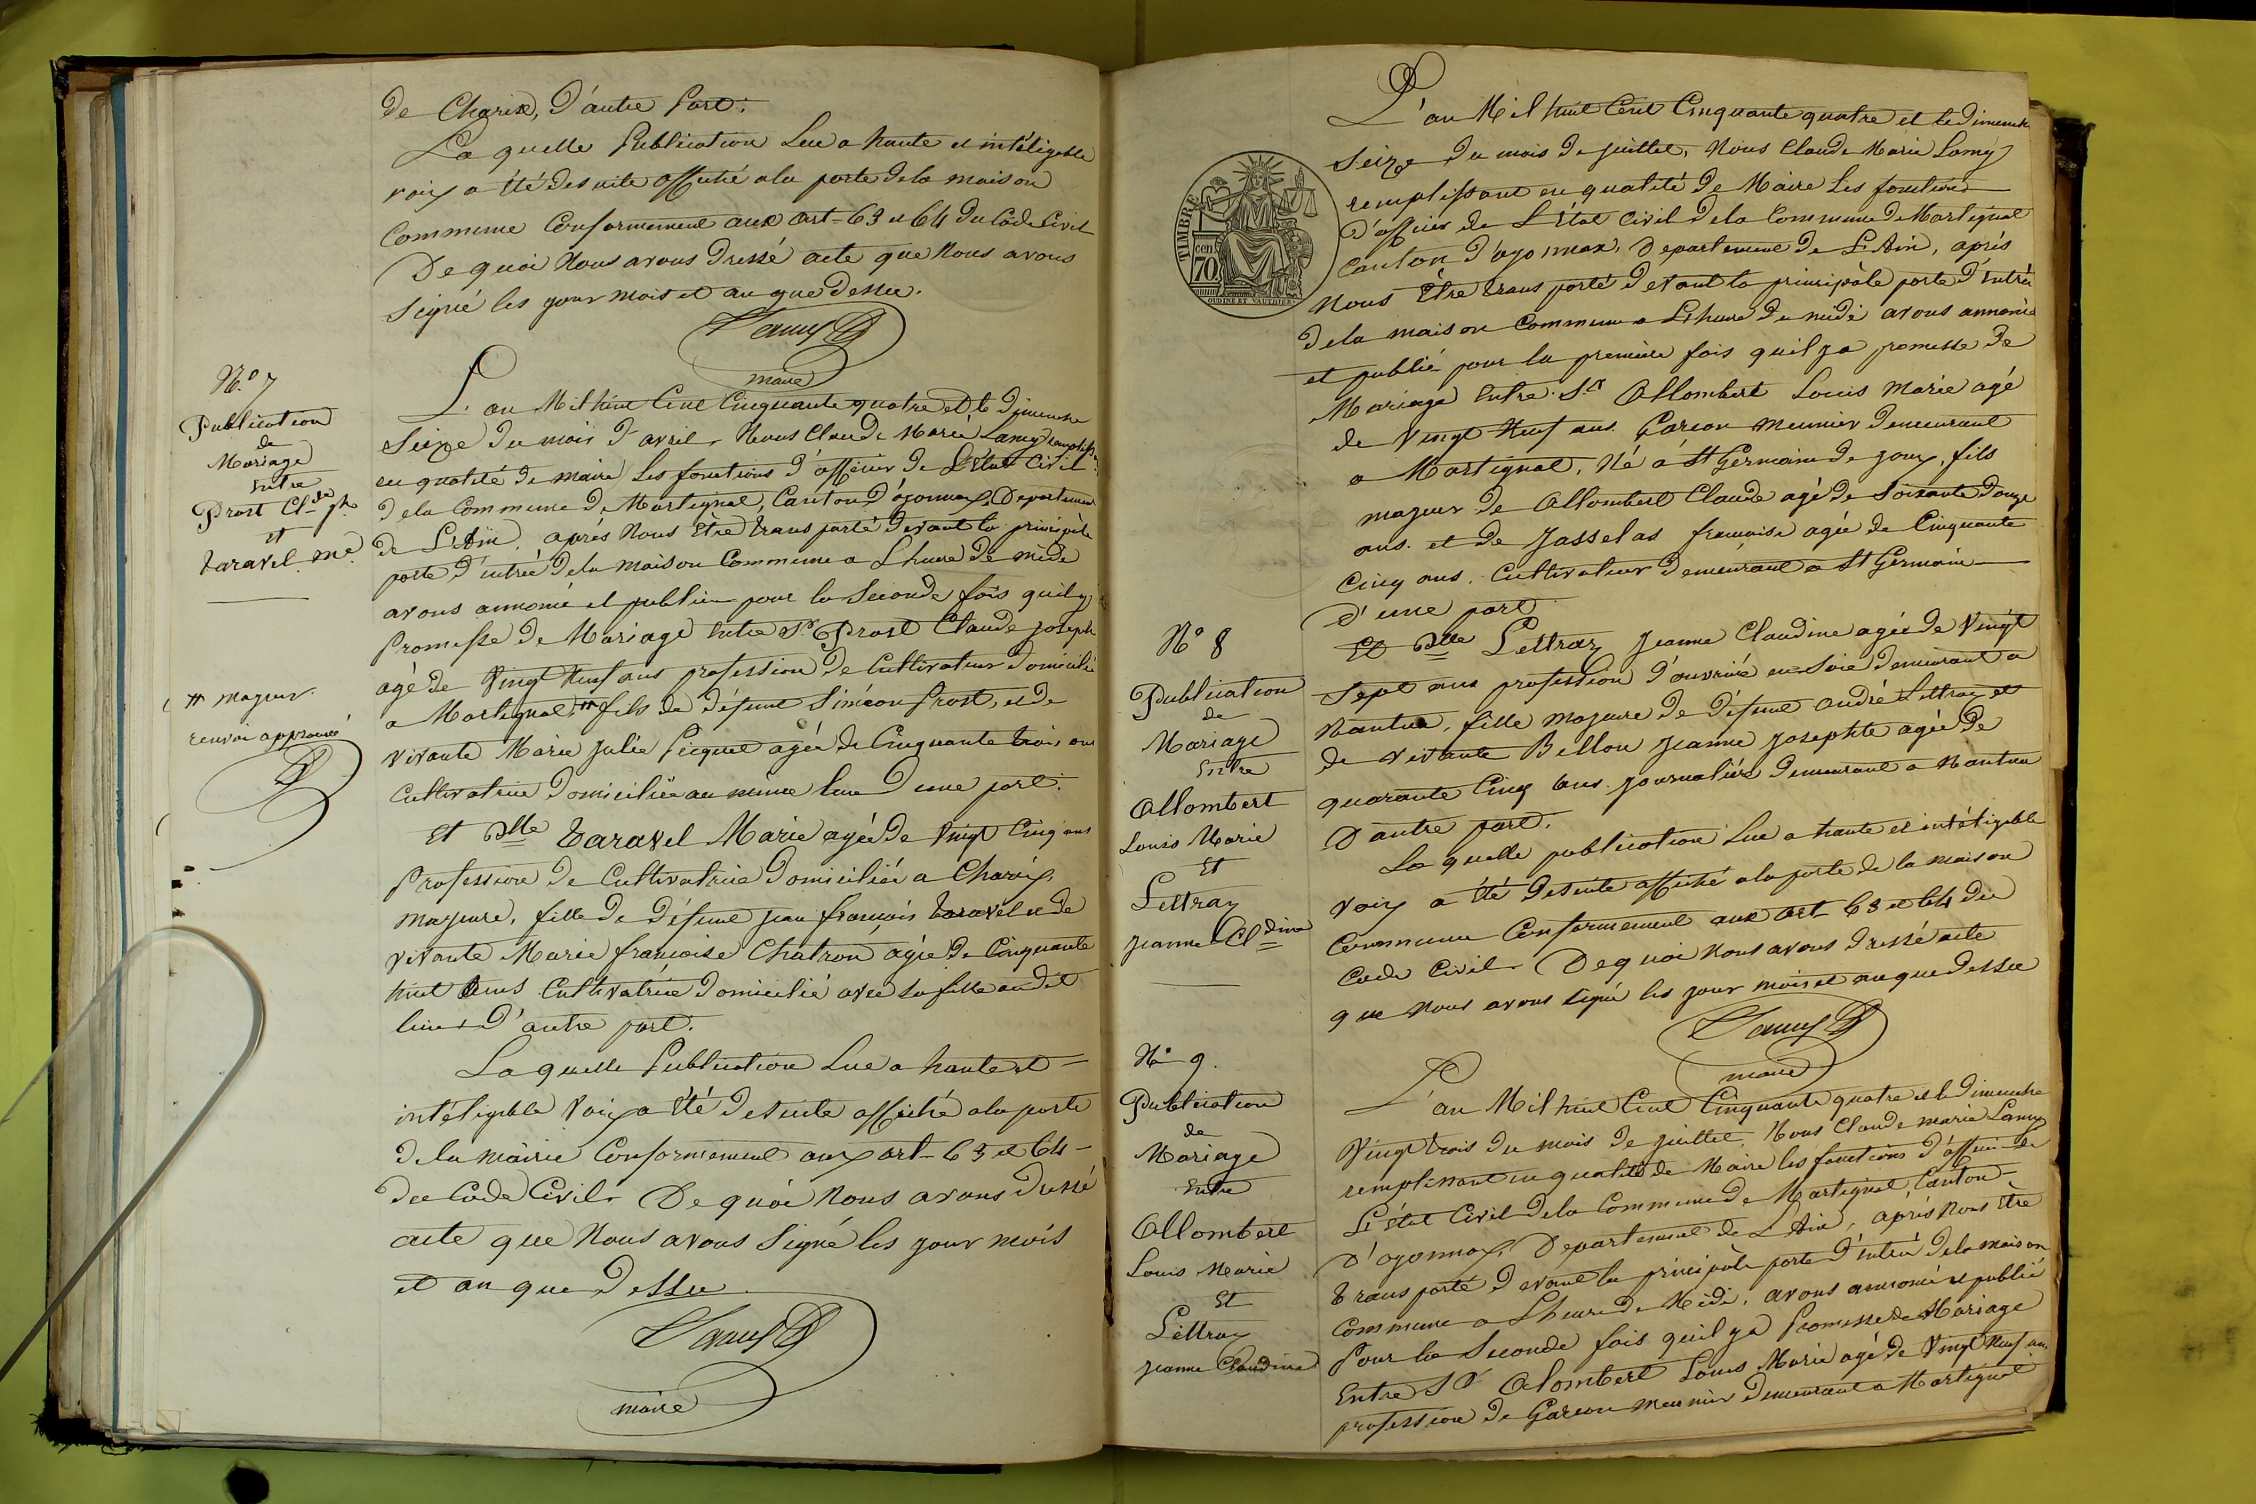 de Charix, d'autre Part.
La quelle Publication Lue a haute et intéligeble
voix a été desuite affiché ala porte dela maison
Commune Conformement aux art - 63 et 64 du Code Civil
De quoi Nous avons dressé acte que Nous avons
signé les jour mois et an que dessu.
Lamy
maire
N.o 7
Publication
de
Mariage
Entre
Prost Cl.de jh
et
taravel m.e
L'an Mil huit Cent Cinquante quatre et le dimenche
Seize du mois d'avril. Nous Claude Marie Lamy remplissant
en qualité de maire les fonctions d'officier de L'état Civil
dela Commune de Martignat, Canton d'oyonnax, Departement
de L'Ain, aprés Nous Etre transporté devant la principale
porte d'entrée dela maison Commune a L'heure de midi
avons annoncé et publié pour la seconde fois quil y a
Promesse de Mariage Entre Sr Prost Claude joseph
agé de Vingt Neuf ans profession de Cultivateur domicilié
a Martignat, # fils de défunt Siméon Prost, et de
# majeur.
renvoi approuvé
vivante Marie julie Picquet agée de Cinquante trois ans
Cultivatrice domiciliée au même lieu d'une part.
Et Dlle taravel Marie agée de Vingt Cinq ans
Profession de Cultivatrice domiciliée a Charix,
majeure, fille de défunt jean françois taravel et de
vivante Marie francoise Chatron agée de Cinquante
huit ans Cultivatrice domicilié avec sa fille audit
lieu d'autre part.
La quelle Publication Lue a haute et
intéligeble Voix a été desuite affiché ala porte
dela mairie Conformement aux art - 63 et 64 -
du Code Civil. De quoi Nous avons dressé
acte que Nous avons Signé les jour mois
et an que dessu
Lamy
maire
TIMBRE
70 cen
OUDINÉ ET VAUTHIER
L'an Mil huit Cent Cinquante quatre et le dimenche
Seize du mois de juillet, Nous Claude Marie Lamy
remplissant en qualité de Maire les fonctions
d'officier de L'état Civil dela Commune de Martignat
Canton d'oyonnax, Departement de L'Ain, aprés
Nous Etre transporté devant la principale porte d'entrée
dela maison Commune a L'heure de midi avons annoncé
et publié pour la première fois quil ya promesse de
Mariage Entre Sr Allombert Louis Marie agé
de Vingt Neuf ans Garcon meunier demeurant
a Martignat, Né a St Germain de joux, fils
majeur de Allombert Claude agé de Soixante douze
ans. et de Jasselas francoise agée de Cinquante
Cinq ans. Cultivateur demeurant a St Germain
d'une part
N° 8
Publication
de
Mariage
Entre
Allombert
Louis Marie
Et
Lettraz
jeanne Cl.dine
Et Dlle Lettraz Jeanne Claudine agée de Vingt
Sept ans profession d'ouvrière en soie demeurant a
Nantua, fille majeure de défunt andré Lettraz et
de vivante Bellon jeanne josephte agée de
quarante Cinq ans journalière demeurant a Nantua
D'autre part.
La quelle publication Lue a haute et intéligeble
Voix a été desuite affiché ala porte de la maison
Commune Conformement aux art - 63 et 64 du
Code Civil. De quoi Nous avons dressé acte
que Nous avons signé les jour mois et an que dessu
Lamy
maire
N° 9.
Publication
de
Mariage
Entre
Allombert
Louis Marie
Et
Lettraz
jeanne Claudine
L'an Mil huit Cent Cinquante quatre et le dimenche
Vingt trois du mois de juillet. Nous Claude marie Lamy
remplissant en qualité de Maire les fonctions d'officier de
L'état Civil dela Commune de Martignat, Canton
d'oyonnax, Departement de L'Ain, aprés Nous Etre
transporté devant la principale porte d'entrée dela maison
Commune a L'heure de Midi, avons annoncé et publié
Pour la Seconde fois quil ya Promesse de Mariage
Entre Sr Alombert Louis Marie agé de Vingt Neuf ans
profession de Garcon meunier demeurant a Martignat